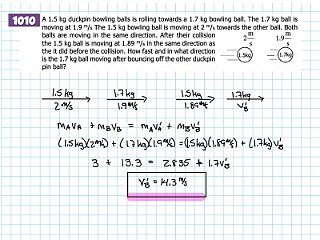 1010
A 1.5 kg duckpin bowling balls is rolling towards a 1.7 kg bowling ball. The 1.7 kg ball is
moving at 1.9 m/s The 1.5 kg bowling ball is moving at 2 m/s towards the other ball. Both
balls are moving in the same direction. After their collision
the 1.5 kg ball is moving at 1.89 m/s in the same direction as
the it did before the collision. How fast and in what direction
is the 1.7 kg ball moving after bouncing off the other duckpin
pin ball?
2 m/s 1.9 m/s
1.5kg 1.7kg
1.5kg 1.7kg 1.5kg 1.7kg
2m/s 1.9m/s 1.89m/s V'B
mAVA + mBVB = mAV'A + mBV'B
(1.5kg)(2m/s) + (1.7kg)(1.9m/s) = (1.5kg)(1.89m/s) + (1.7kg)V'B
3 + 13.3 = 2.835 + 1.7V'B
V'B = 14.3 m/s